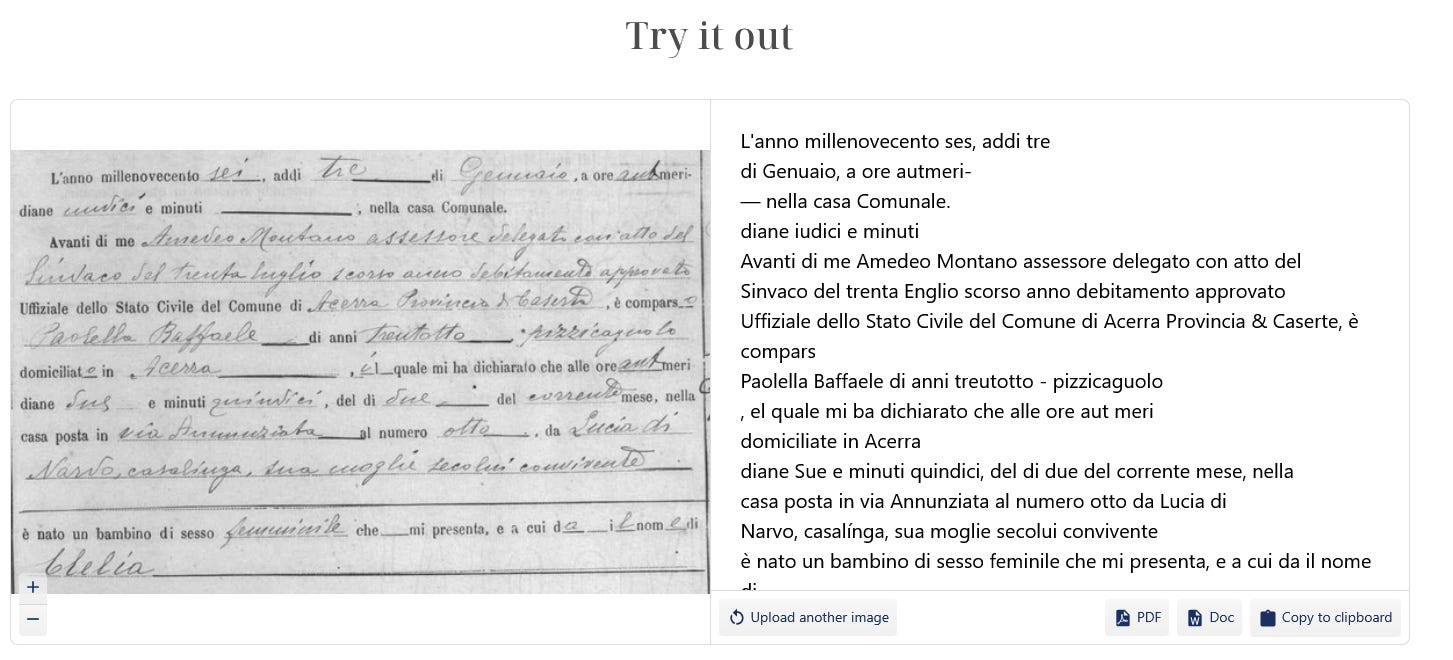 Try it out
L'anno millenovecento sei, addi tre di Gennaio, a ore antmeri-
diane undici e minuti , nella casa Comunale.
Avanti di me Amedeo Montano assessore delegato con atto del
Sindaco del trenta luglio scorso anno debitamente approvato
Uffiziale dello Stato Civile del Comune di Acerra Provincia di Caserta, è comparso
Paolella Raffaele di anni trentotto pizzicagnolo
domiciliato in Acerra, il quale mi ha dichiarato che alle ore antmeri
diane due e minuti quindici, del di due del corrente mese, nella
casa posta in via Annunziata al numero otto, da Lucia di
Nardo, casalinga, sua moglie secolui convivente
è nato un bambino di sesso femminile che mi presenta, e a cui da il nome di
Clelia
L'anno millenovecento ses, addi tre
di Genuaio, a ore autmeri-
— nella casa Comunale.
diane iudici e minuti
Avanti di me Amedeo Montano assessore delegato con atto del
Sinvaco del trenta Englio scorso anno debitamento approvato
Uffiziale dello Stato Civile del Comune di Acerra Provincia & Caserte, è
compars
Paolella Baffaele di anni treutotto - pizzicaguolo
, el quale mi ba dichiarato che alle ore aut meri
domiciliate in Acerra
diane Sue e minuti quindici, del di due del corrente mese, nella
casa posta in via Annunziata al numero otto da Lucia di
Narvo, casalínga, sua moglie secolui convivente
è nato un bambino di sesso feminile che mi presenta, e a cui da il nome
di
+
−
Upload another image
PDF
Doc
Copy to clipboard